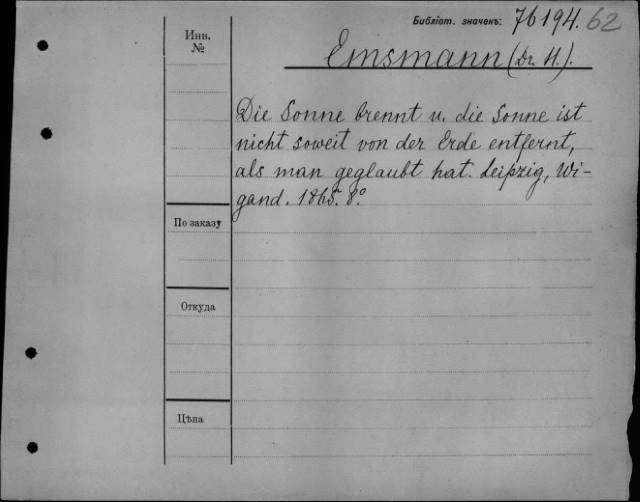 Библіот. значекъ: 76194. 62
Инв. №
Emsmann (Dr. H.).
Die Sonne brennt u. die Sonne ist
nicht soweit von der Erde entfernt,
als man geglaubt hat. Leipzig, Wi-
gand. 1865. 8º.
По заказу
Откуда
Цѣна